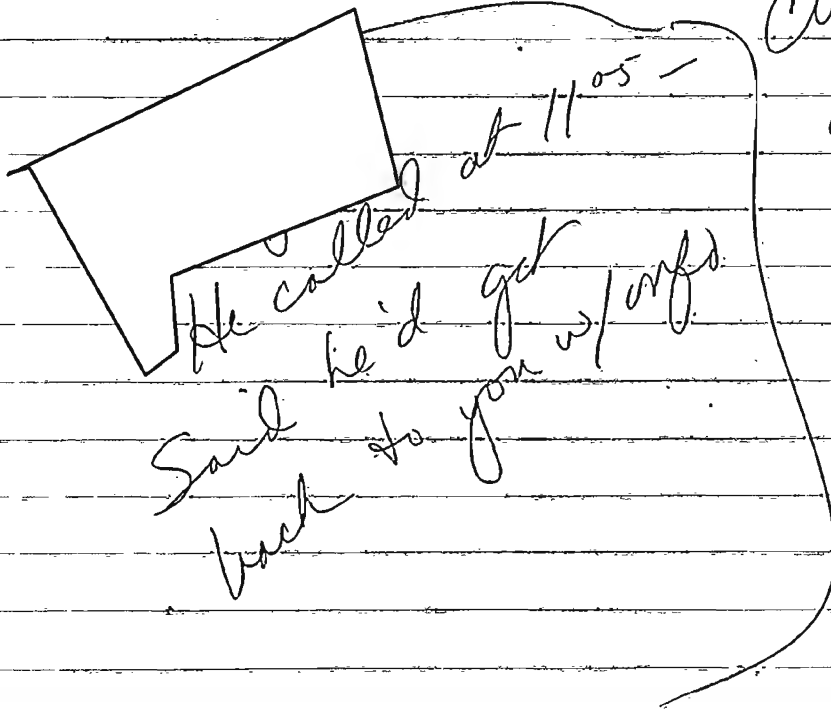 He called at 11 05 —
Said he'd get
back to you w/ info